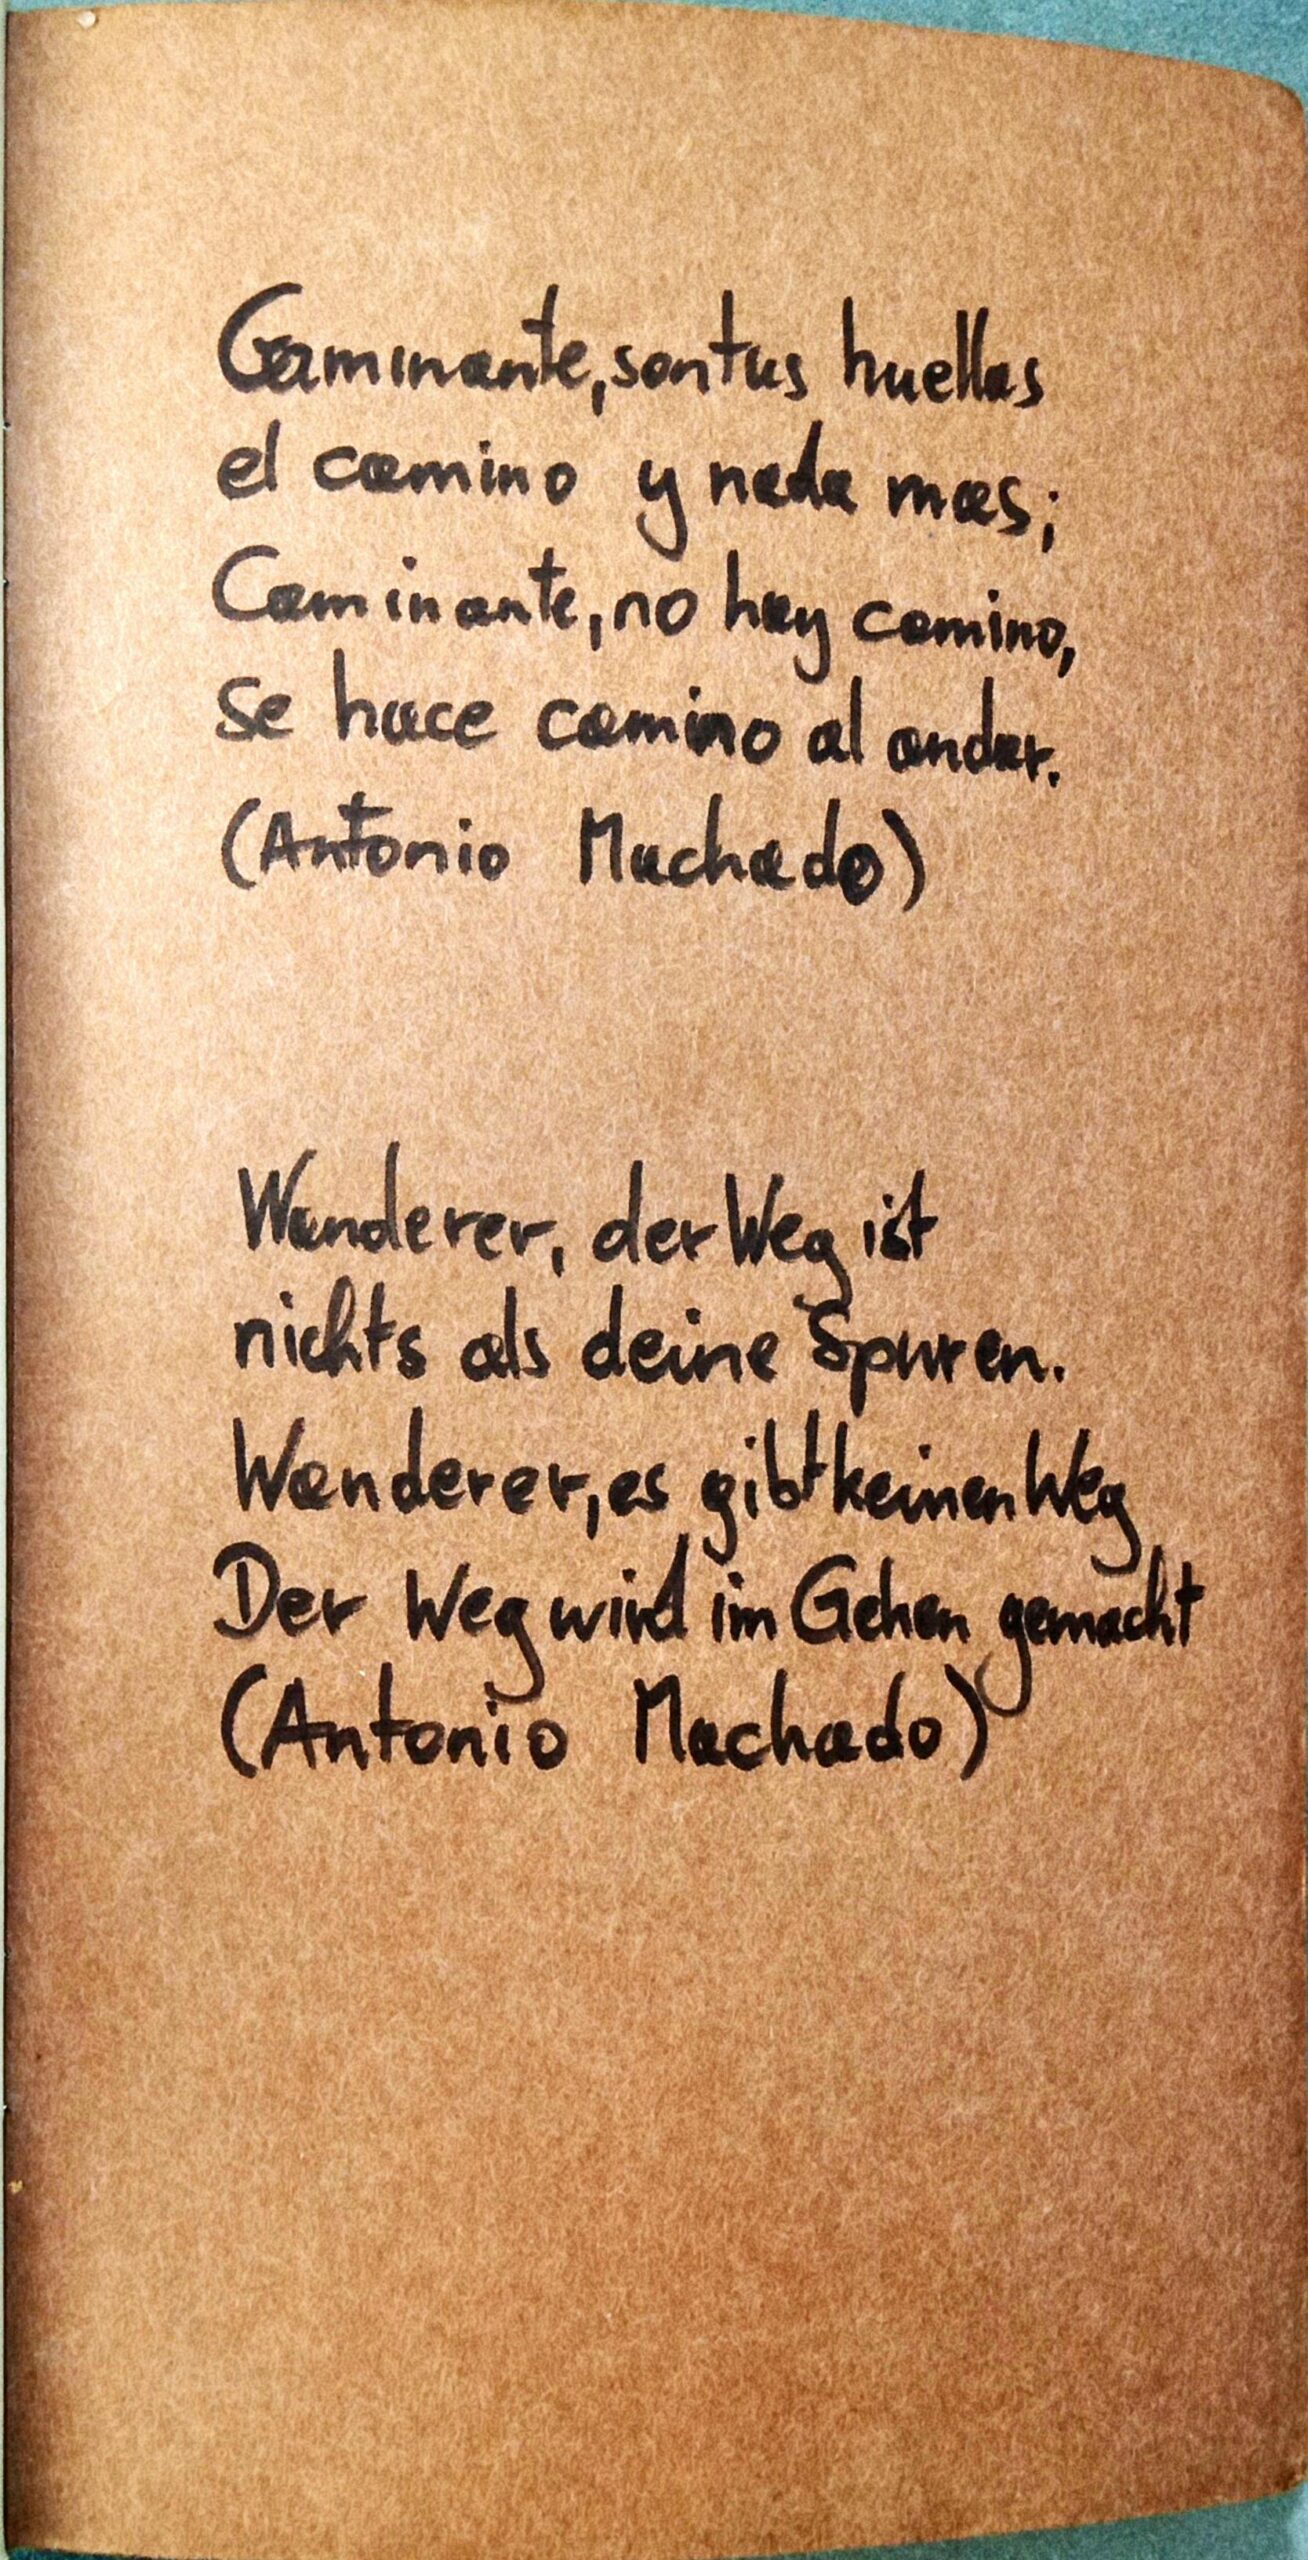 Caminante, son tus huellas
el camino y nada mas;
Caminante, no hay camino,
se hace camino al andar.
(Antonio Machado)
Wanderer, der Weg ist
nichts als deine Spuren.
Wanderer, es gibt keinen Weg
Der Weg wird im Gehen gemacht
(Antonio Machado)